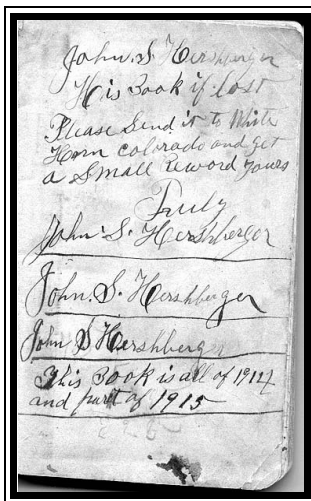 John. S Hershberger
His Book if lost
Please Send it to White
Horn Colorado and get
a Small Reword yours
Truly
John. S. Hershberger
John. S. Hershberger
John S Hershberger
This Book is all of 1914
and part of 1915